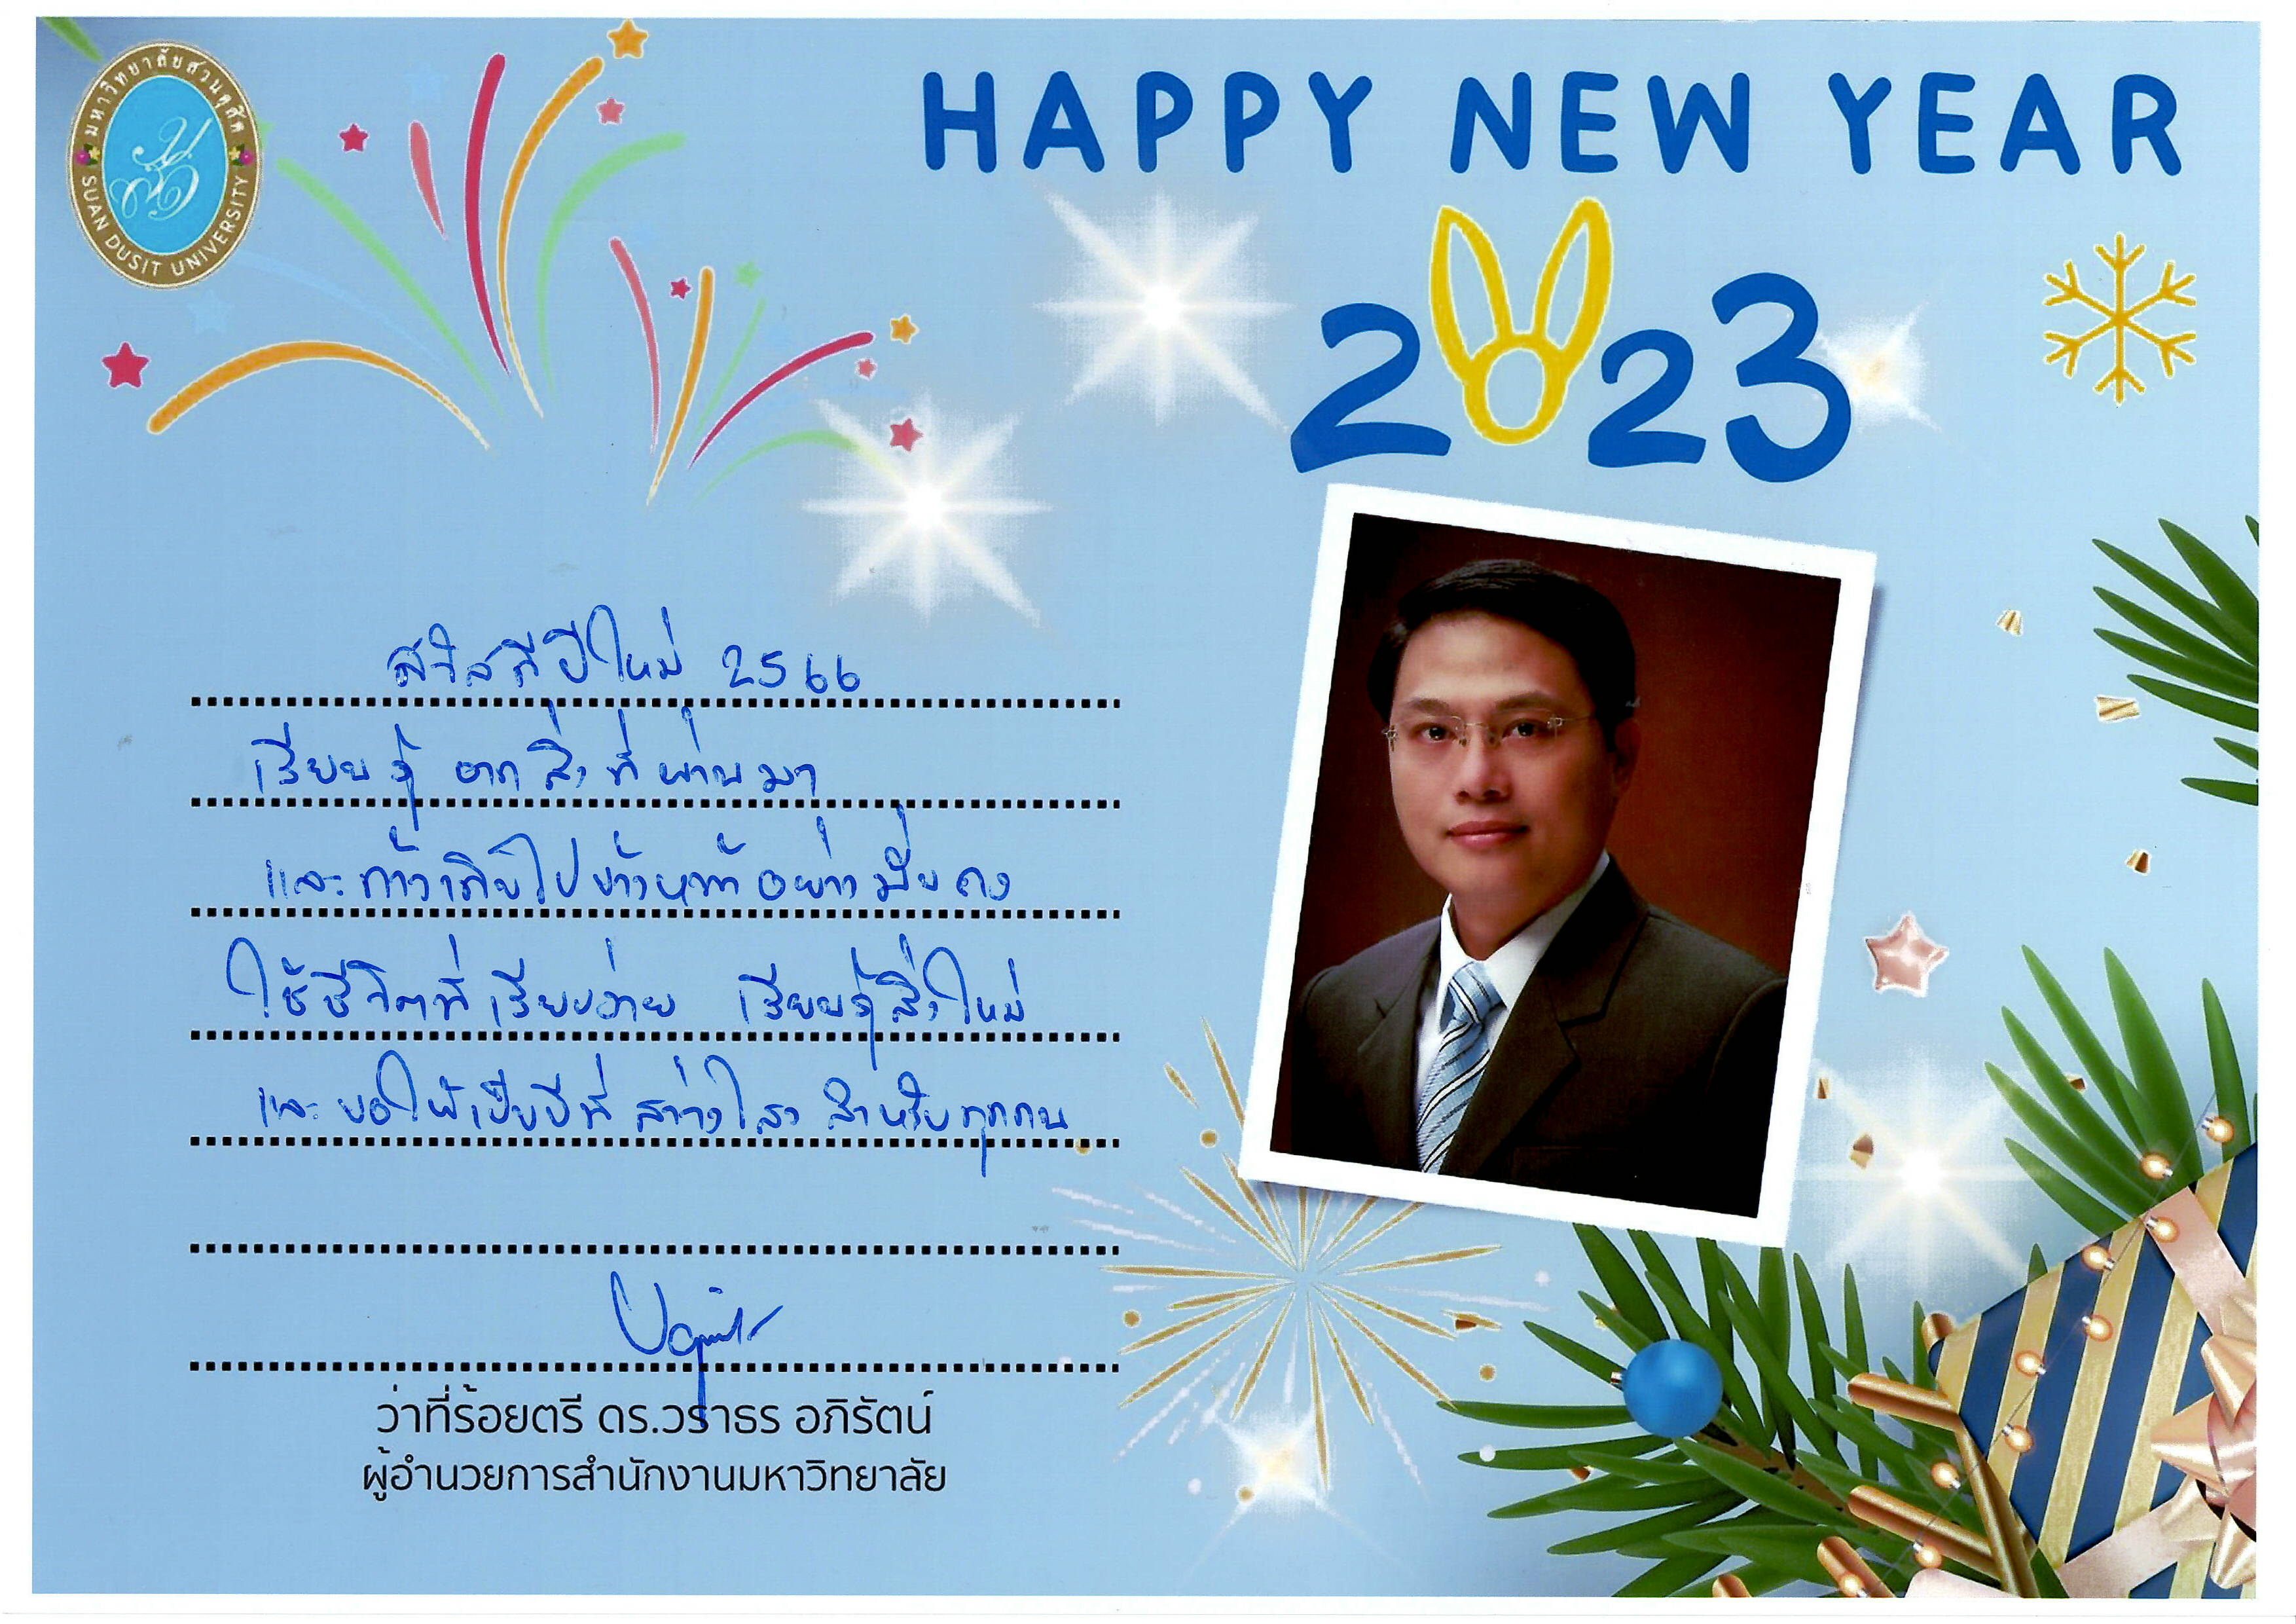 มหาวิทยาลัยสวนดุสิต
SUAN DUSIT UNIVERSITY
HAPPY NEW YEAR
2023
สวัสดีปีใหม่ 2566
เรียนรู้ จาก สิ่งที่ผ่านมา
และก้าวเดินไปข้างหน้าอย่างมั่นคง
ใช้ชีวิตที่เรียบง่าย เรียนรู้สิ่งใหม่
และขอให้เป็นปีที่สว่างไสว สำหรับทุกคน
ว่าที่ร้อยตรี ดร.วราธร อภิรัตน์
ผู้อำนวยการสำนักงานมหาวิทยาลัย